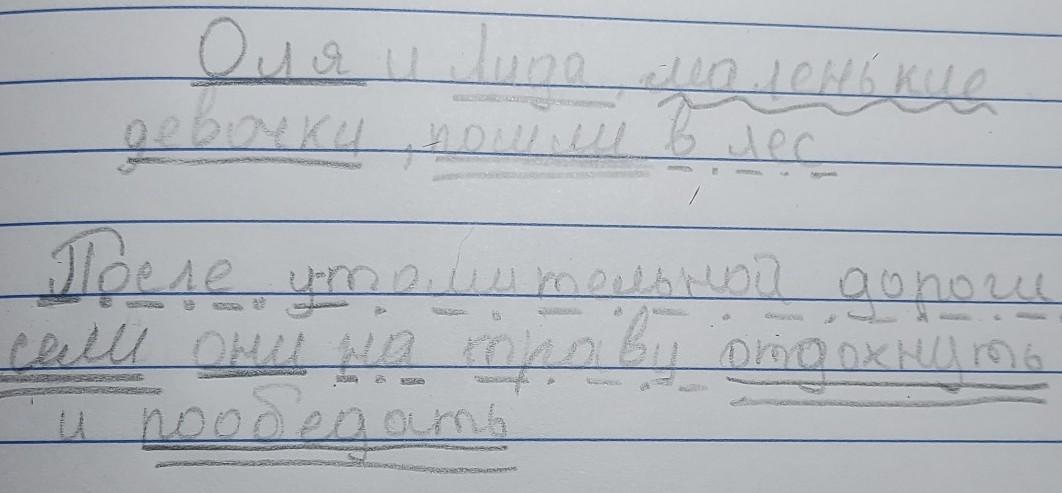 Оля и Лида, маленькие
девочки, пошли в лес
После утомительной дороги
сели они на траву отдохнуть
и пообедать